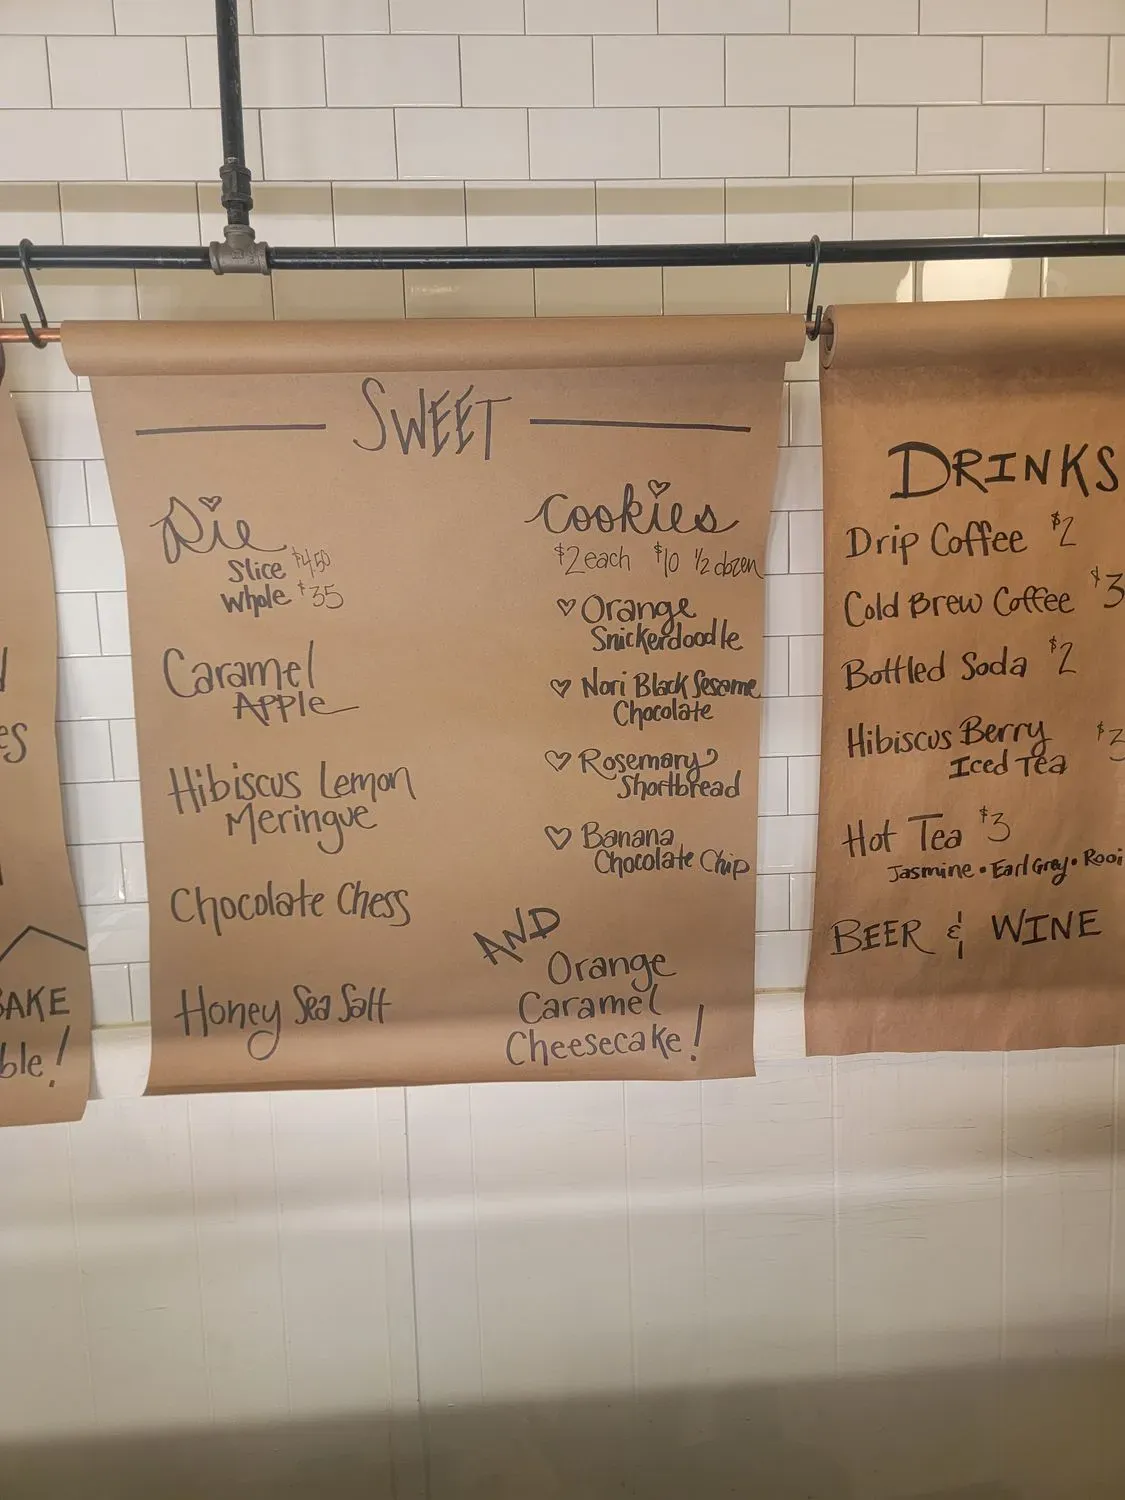 es
BAKE
ble!
SWEET
Pie
Slice $4.50
Whole $35
Caramel
Apple
Hibiscus Lemon
Meringue
Chocolate Chess
Honey Sea Salt
Cookies
$2 each $10 1/2 dozen
Orange
Snickerdoodle
Nori Black Sesame
Chocolate
Rosemary
Shortbread
Banana
Chocolate Chip
AND
Orange
Caramel
Cheesecake!
DRINKS
Drip Coffee $2
Cold Brew Coffee $3
Bottled Soda $2
Hibiscus Berry
Iced Tea $3
Hot Tea $3
Jasmine • Earl Grey • Rooi
BEER & WINE